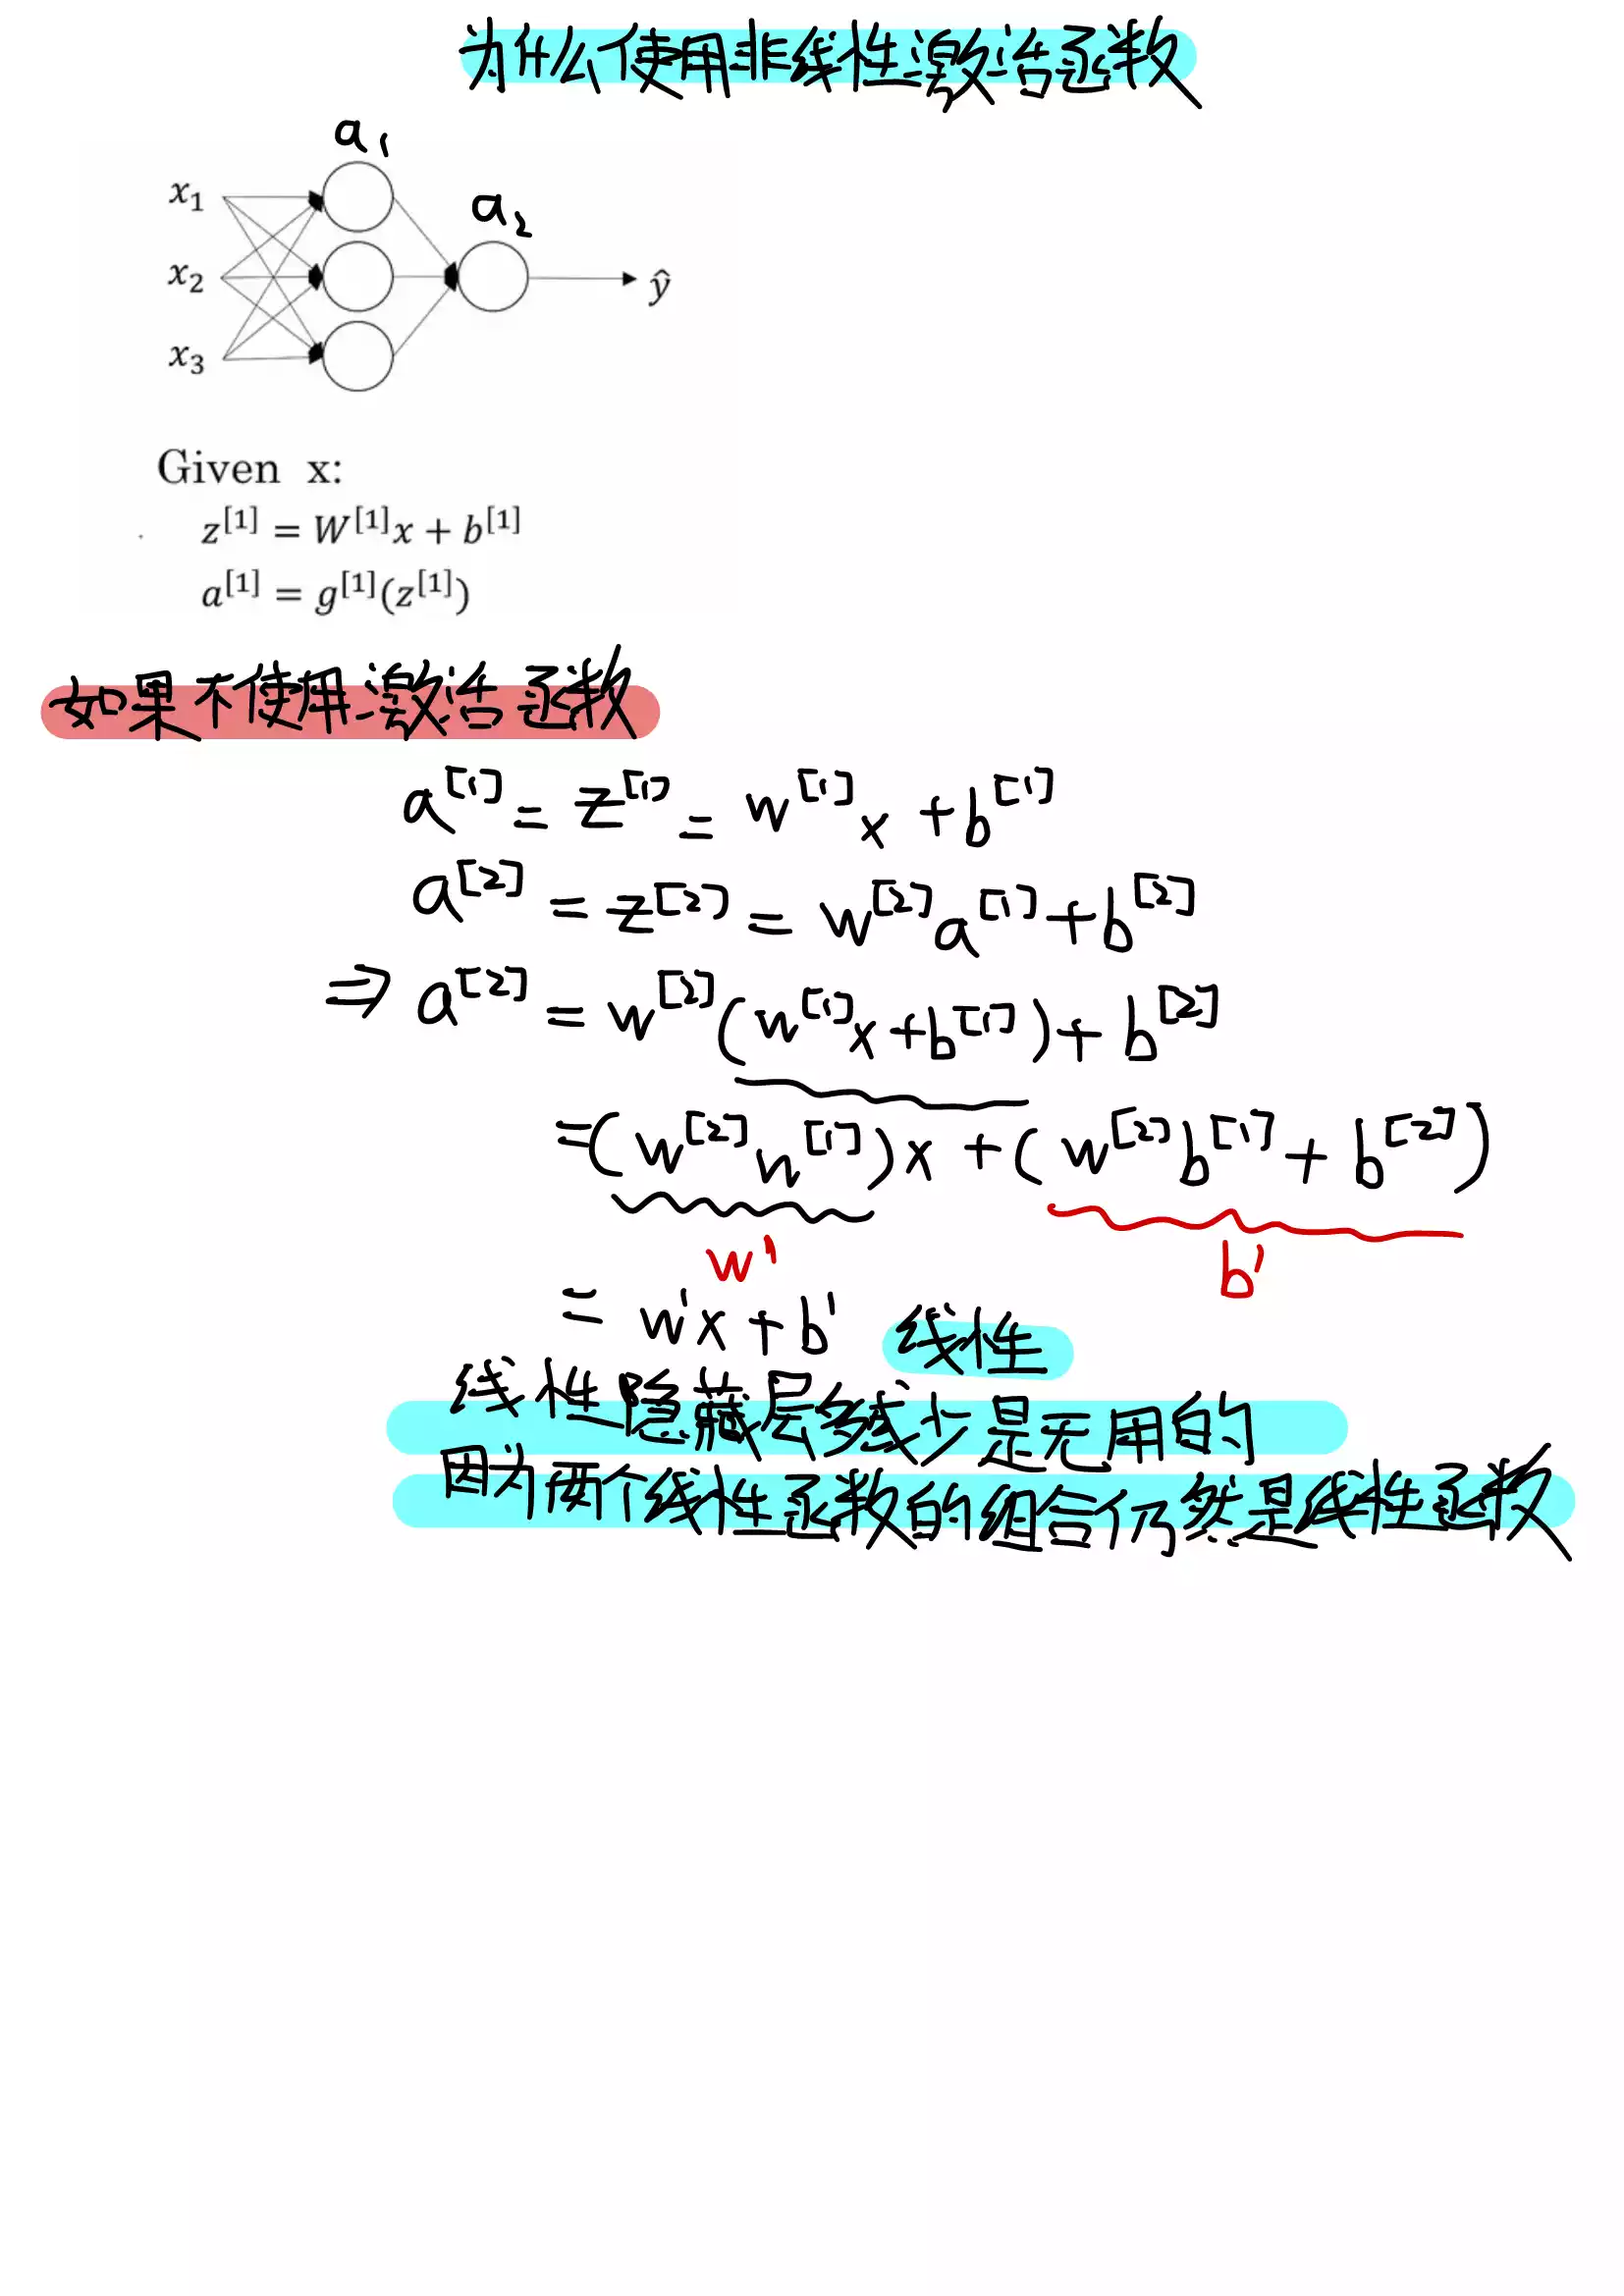 为什么使用非线性激活函数
a₁
x₁
a₂
x₂
ŷ
x₃
Given x:
z^[1] = W^[1]x + b^[1]
a^[1] = g^[1](z^[1])
如果不使用激活函数
a^[1] = z^[1] = w^[1]x + b^[1]
a^[2] = z^[2] = w^[2]a^[1] + b^[2]
⇒ a^[2] = w^[2](w^[1]x + b^[1]) + b^[2]
= (w^[2]w^[1])x + (w^[2]b^[1] + b^[2])
w' b'
= w'x + b' 线性
线性隐藏层多或少是无用的
因为两个线性函数的组合仍然是线性函数